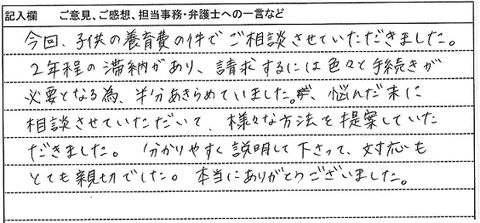 記入欄 ご意見、ご感想、担当事務・弁護士への一言など
今回、子供の養育費の件でご相談させていただきました。
2年程の滞納があり、請求するには色々と手続きが
必要となる為、半分あきらめていました。が、悩んだ末に
相談させていただいて、様々な方法を提案していた
だきました。 分かりやすく説明して下さって、対応も
とても親切でした。本当にありがとうございました。